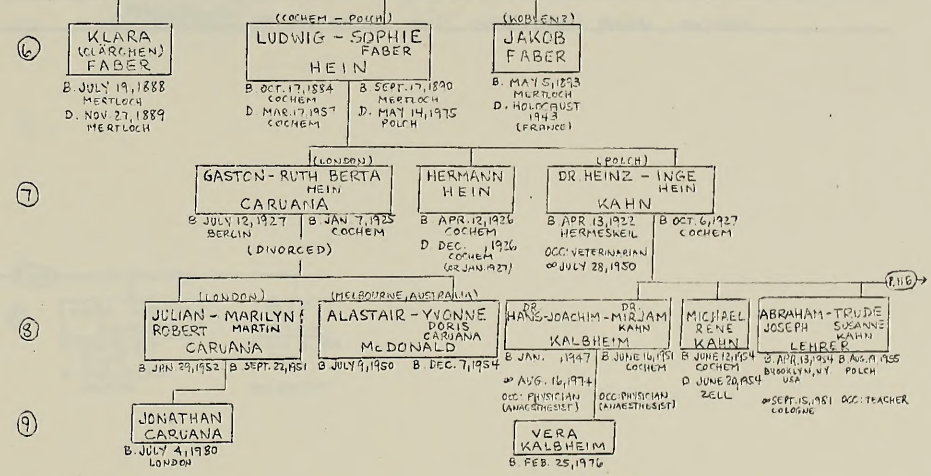 6
KLARA
(CLÄRCHEN)
FABER
B. JULY 19, 1888
MERTLOCH
D. NOV. 27, 1889
MERTLOCH
(COCHEM - POLCH)
LUDWIG - SOPHIE
FABER
HEIN
B OCT. 17, 1884
COCHEM
D MAR. 17, 1957
COCHEM
B SEPT. 17, 1890
MERTLOCH
D. MAY 14, 1975
POLCH
(KOBLENZ)
JAKOB
FABER
B. MAY 5, 1893
MERTLOCH
D. HOLOCAUST
1943
(FRANCE)
7
(LONDON)
GASTON - RUTH BERTA
HEIN
CARUANA
B JULY 12, 1927
BERLIN
B. JAN 7, 1925
COCHEM
(DIVORCED)
HERMANN
HEIN
B APR. 12, 1926
COCHEM
D DEC. , 1926
COCHEM
(OR JAN. 1927)
(POLCH)
DR. HEINZ - INGE
HEIN
KAHN
B APR. 13, 1922
HERMESKEIL
OCC: VETERINARIAN
∞ JULY 28, 1950
B OCT. 6, 1927
COCHEM
P. H6
8
(LONDON)
JULIAN - MARILYN
ROBERT MARTIN
CARUANA
B JAN 29, 1952
B SEPT. 22, 1951
(MELBOURNE, AUSTRALIA)
ALASTAIR - YVONNE
DORIS
CARUANA
McDONALD
B JULY 9, 1950
B. DEC. 7, 1954
DR. DR.
HANS-JOACHIM - MIRJAM
KAHN
KALBHEIM
B JAN. , 1947
∞ AUG. 16, 1974
OCC: PHYSICIAN
(ANAESTHESIST)
B JUNE 16, 1951
COCHEM
OCC: PHYSICIAN
(ANAESTHESIST)
MICHAEL
RENE
KAHN
B JUNE 12, 1954
COCHEM
D JUNE 20, 1954
ZELL
ABRAHAM - TRUDE
JOSEPH SUSANNE
KAHN
LEHRER
B. APR. 13, 1954
BROOKLYN, NY
USA
∞ SEPT. 15, 1981
COLOGNE
B. AUG. 19, 1955
POLCH
OCC: TEACHER
9
JONATHAN
CARUANA
B. JULY 4, 1980
LONDON
VERA
KALBHEIM
B. FEB. 25, 1976